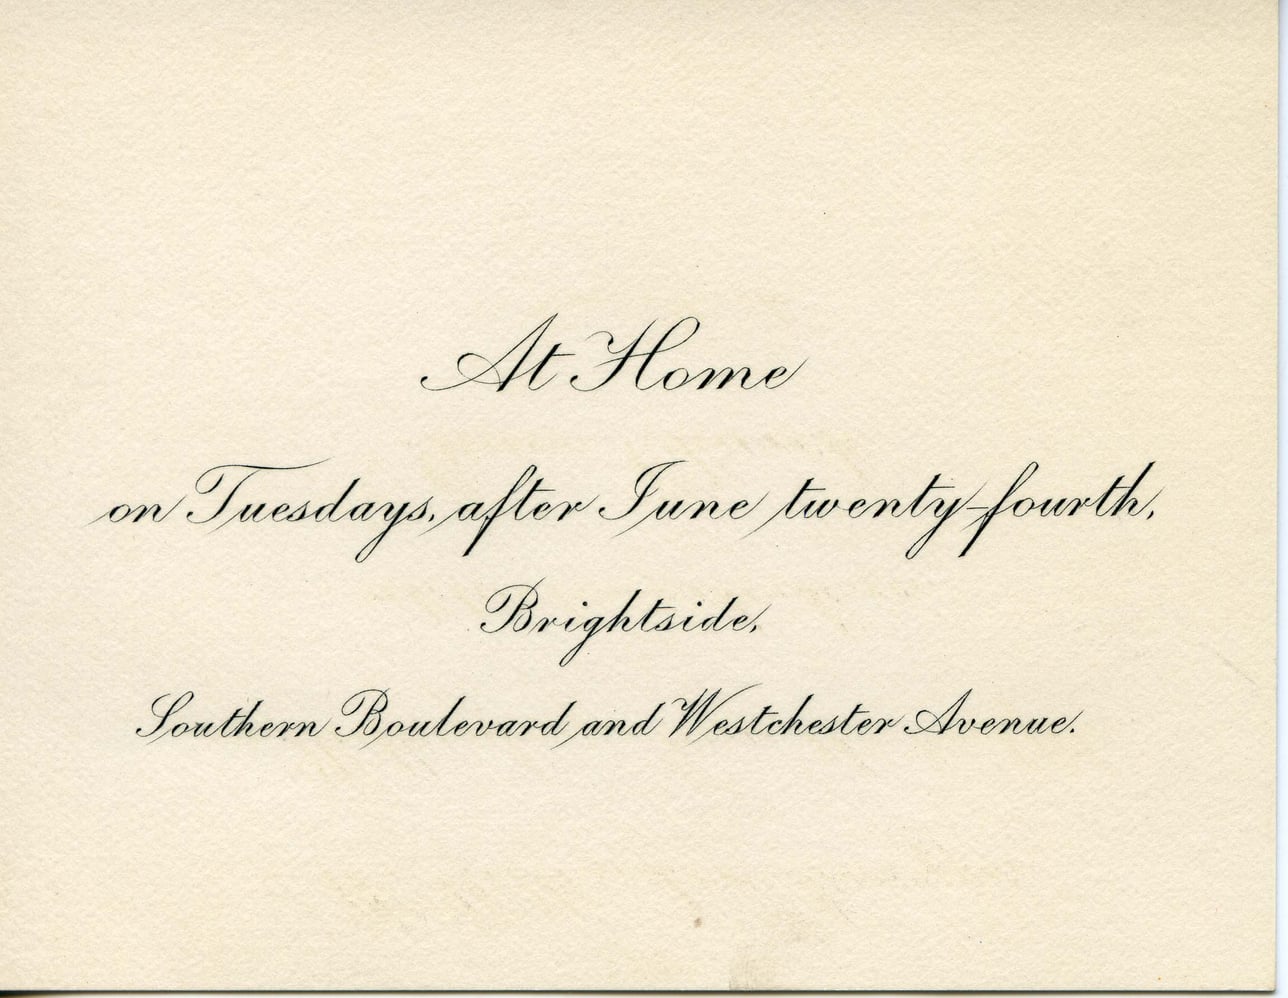 At Home
on Tuesdays, after June twenty-fourth,
Brightside,
Southern Boulevard and Westchester Avenue.